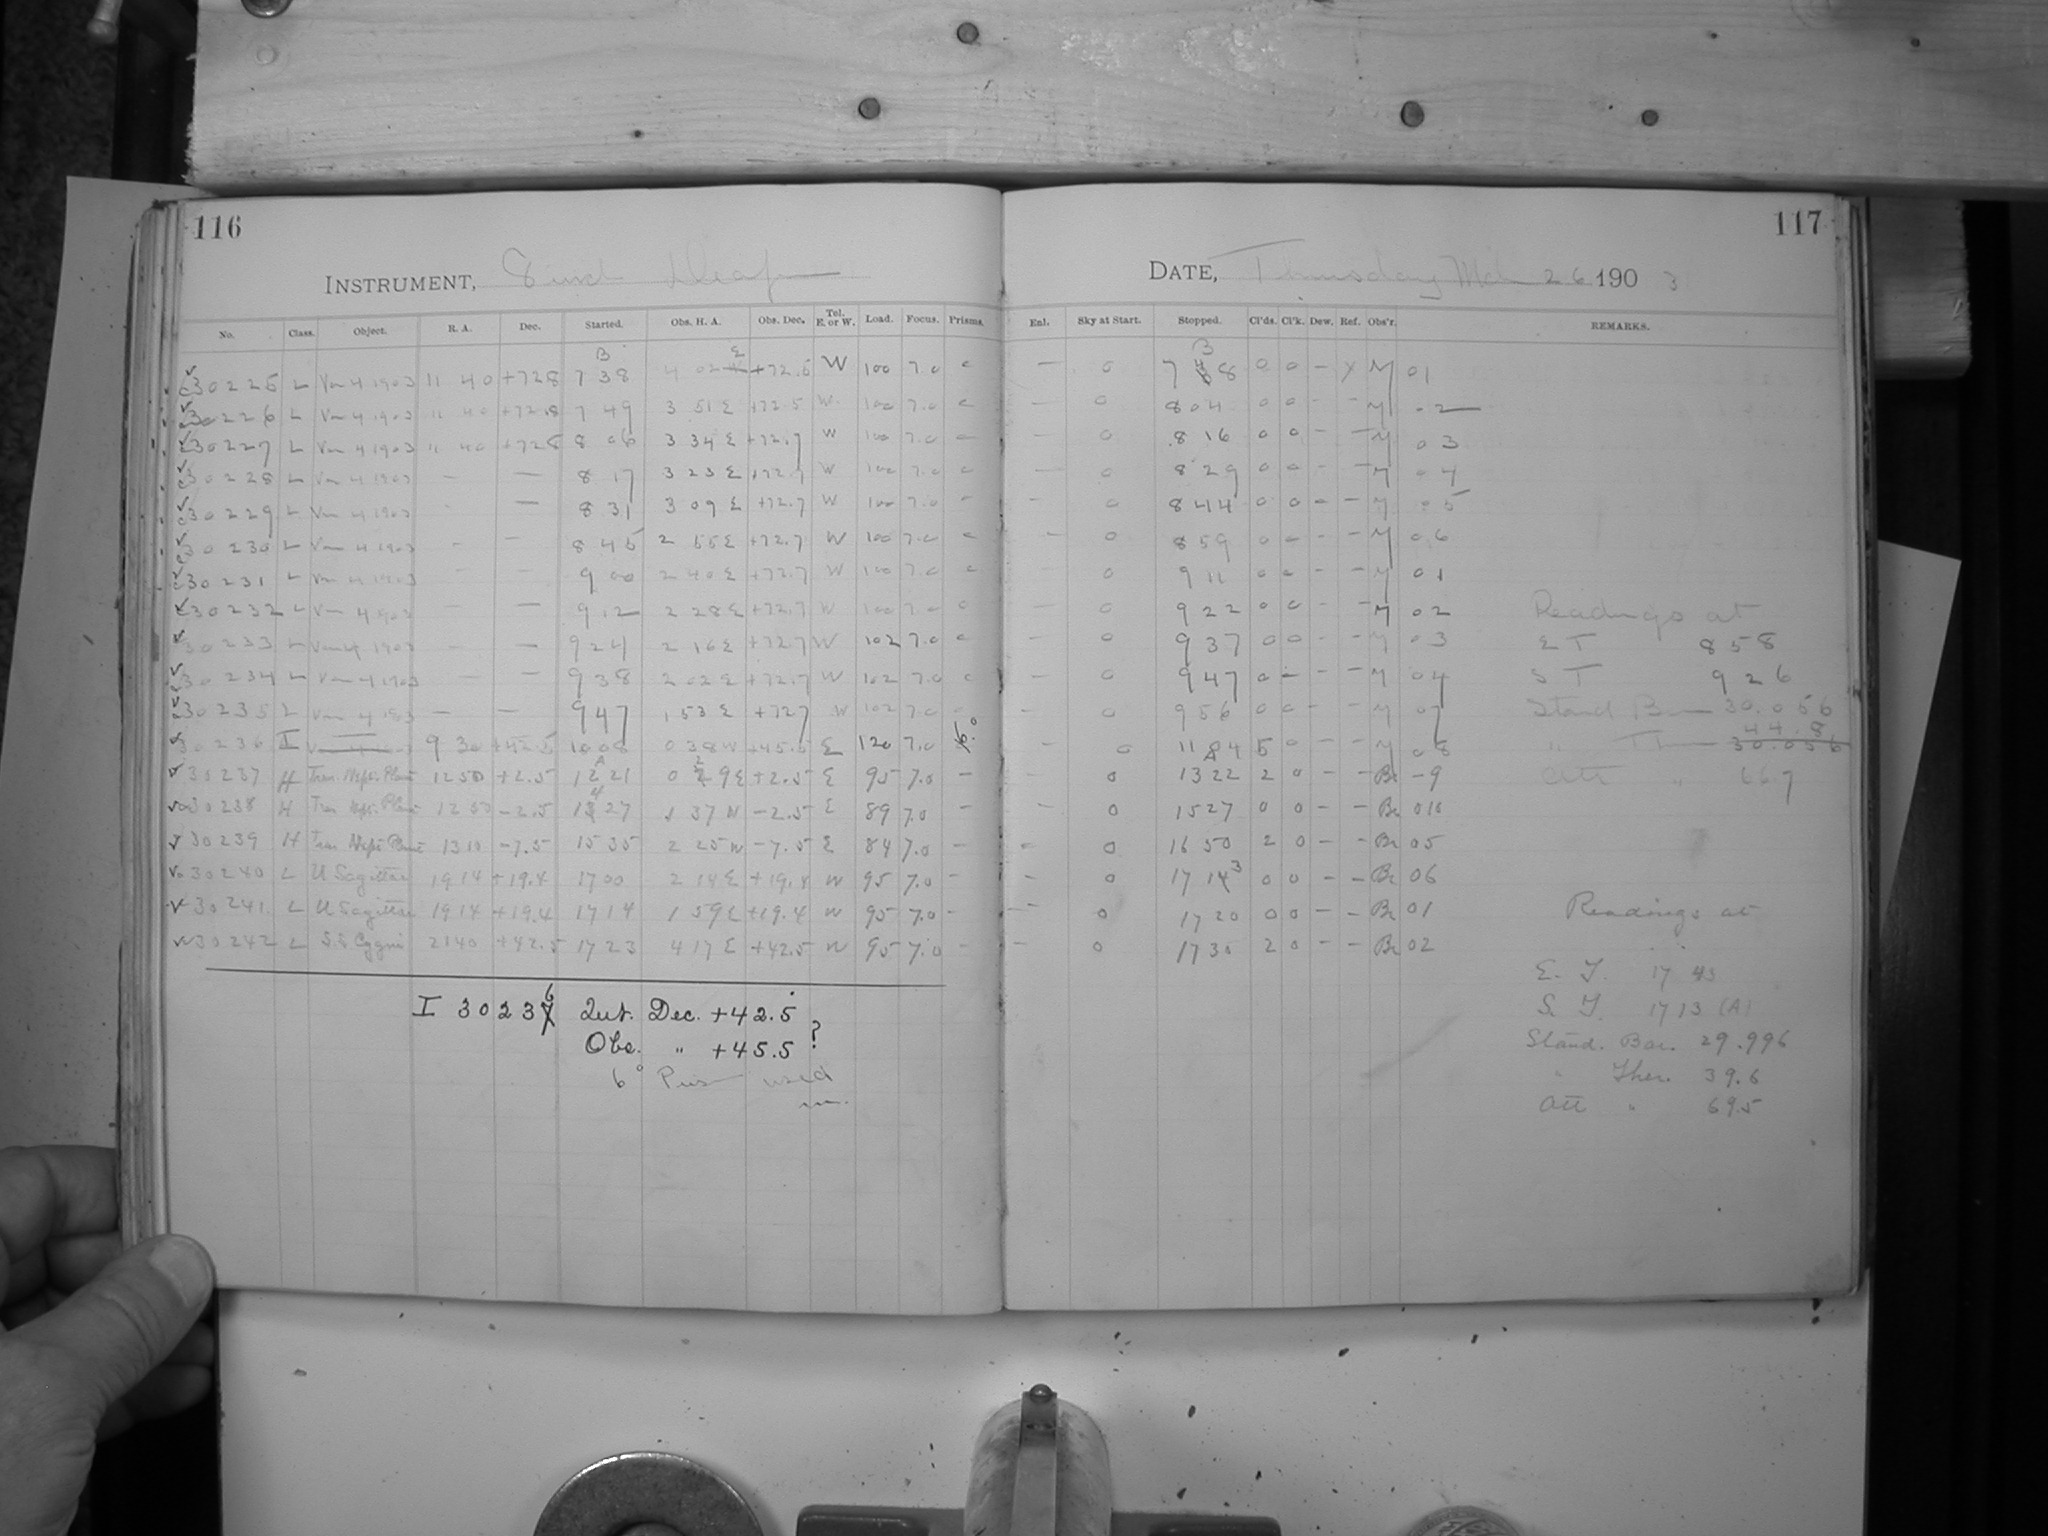 116
INSTRUMENT, 8 inch Draper
No. Class. Object. R. A. Dec. Started. Obs. H. A. Obs. Dec. Tel. E. or W. Load. Focus. Prisms.
30225 L Var 4 1903 11 40 +72.8 7 38 4 02 E +72.5 W 100 7.0 0
30226 L Var 4 1903 11 40 +72.8 7 49 3 51 E +72.5 W 100 7.0 0
30227 L Var 4 1903 11 40 +72.8 8 06 3 34 E +72.7 W 100 7.0 0
30228 L Var 4 1903 - - 8 17 3 23 E +72.7 W 100 7.0 0
30229 L Var 4 1903 - - 8 31 3 09 E +72.7 W 100 7.0 -
30230 L Var 4 1903 - - 8 45 2 55 E +72.7 W 100 7.0 0
30231 L Var 4 1903 - - 9 00 2 40 E +72.7 W 100 7.0 0
30232 L Var 4 1903 - - 9 12 2 28 E +72.7 W 100 7.0 0
30233 L Var 4 1903 - - 9 24 2 16 E +72.7 W 102 7.0 0
30234 L Var 4 1903 - - 9 38 2 02 E +72.7 W 102 7.0 0
30235 L Var 4 1903 - - 9 47 1 53 E +72.7 W 102 7.0 -
30236 I 9 30 +42.5 10 08 0 38 W +45.5 E 120 7.0 6°
30237 H Tran. Nept. Planet 12 50 +2.5 12 21 0 29 E +2.5 E 95 7.0 -
30238 H Tran. Nept. Planet 12 50 -2.5 14 27 1 37 W -2.5 E 89 7.0 -
30239 H Tran Nept. Planet 13 10 -7.5 15 35 2 25 W -7.5 E 84 7.0 -
30240 L U Sagittae 19 14 +19.4 17 00 2 14 E +19.4 W 95 7.0 -
30241 L U Sagittae 19 14 +19.4 17 14 1 59 E +19.4 W 95 7.0 -
30242 L S.S. Cygni 21 40 +42.5 17 23 4 17 E +42.5 W 95 7.0 -
I 30236 Int. Dec. +42.5
Obs. " +45.5 ?
6° Prism used
m.
117
DATE, Thursday Mch 26 1903
Enl. Sky at Start. Stopped. Cl'ds. Cl'k. Dew. Ref. Obs'r. REMARKS.
- 0 7 48 0 0 - Y M 01
- 0 8 04 0 0 - - M 02
- 0 8 16 0 0 - - M 03
- 0 8 29 0 0 - - M 04
- 0 8 44 0 0 - - M 05
- 0 8 59 0 0 - - M 06
- 0 9 11 0 0 - - M 01
- 0 9 22 0 0 - - M 02
- 0 9 37 0 0 - - M 03
- 0 9 47 0 - - - M 04
- 0 9 56 0 0 - - M 07
- 0 11 04 5 0 - - M 08
0 13 22 2 0 - - Br -9
- 0 15 27 0 0 - - Br 010
- 0 16 50 2 0 - - Br 05
- 0 17 13 0 0 - - Br 06
- 0 17 20 0 0 - - Br 01
- 0 17 30 2 0 - - Br 02
Readings at
E T 8 58
S T 9 26
Stand Bar 30.056
" Ther 44.8
30.056
Att " 66.7
Readings at
E. T. 17 43
S. T. 17 13 (A)
Stand. Bar. 29.996
" Ther. 39.6
Att " 69.5